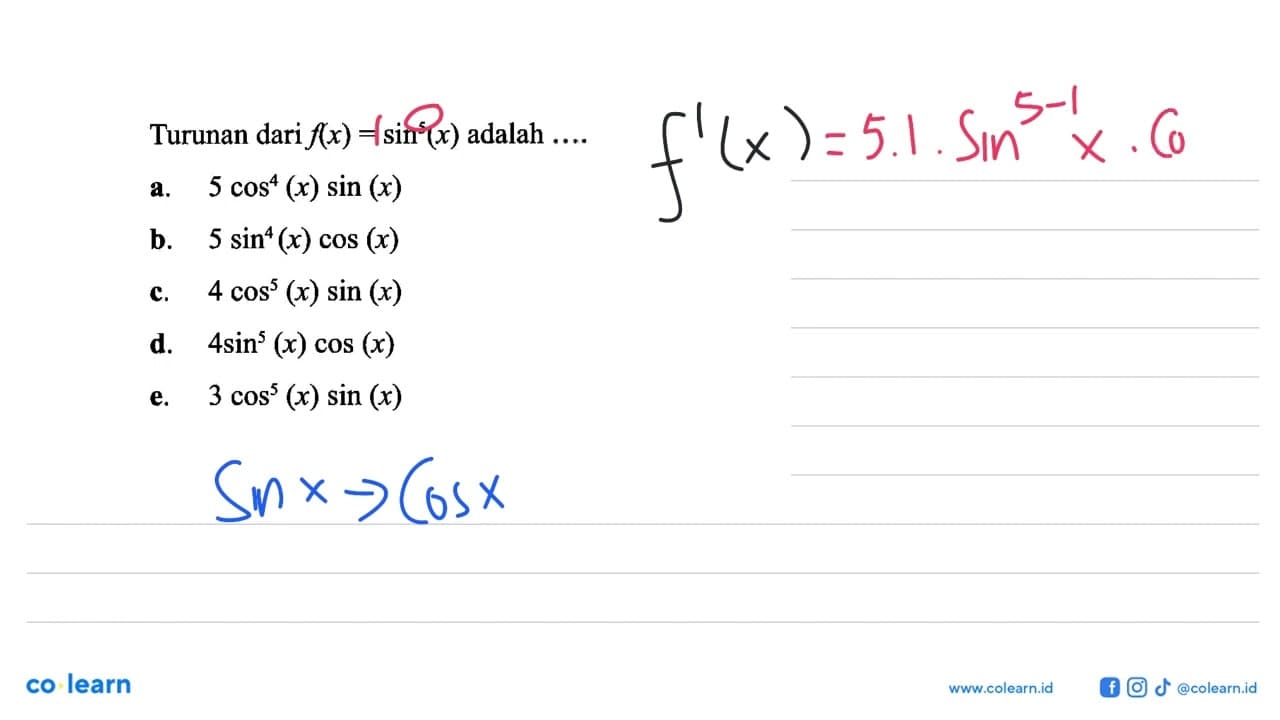 Turunan dari f(x) = 1 sin⁵(x) adalah ....
a. 5 cos⁴ (x) sin (x)
b. 5 sin⁴ (x) cos (x)
c. 4 cos⁵ (x) sin (x)
d. 4sin⁵ (x) cos (x)
e. 3 cos⁵ (x) sin (x)
f'(x) = 5.1. Sin⁵⁻¹ x . Co
Sin x → Cos x
co learn
www.colearn.id
@colearn.id